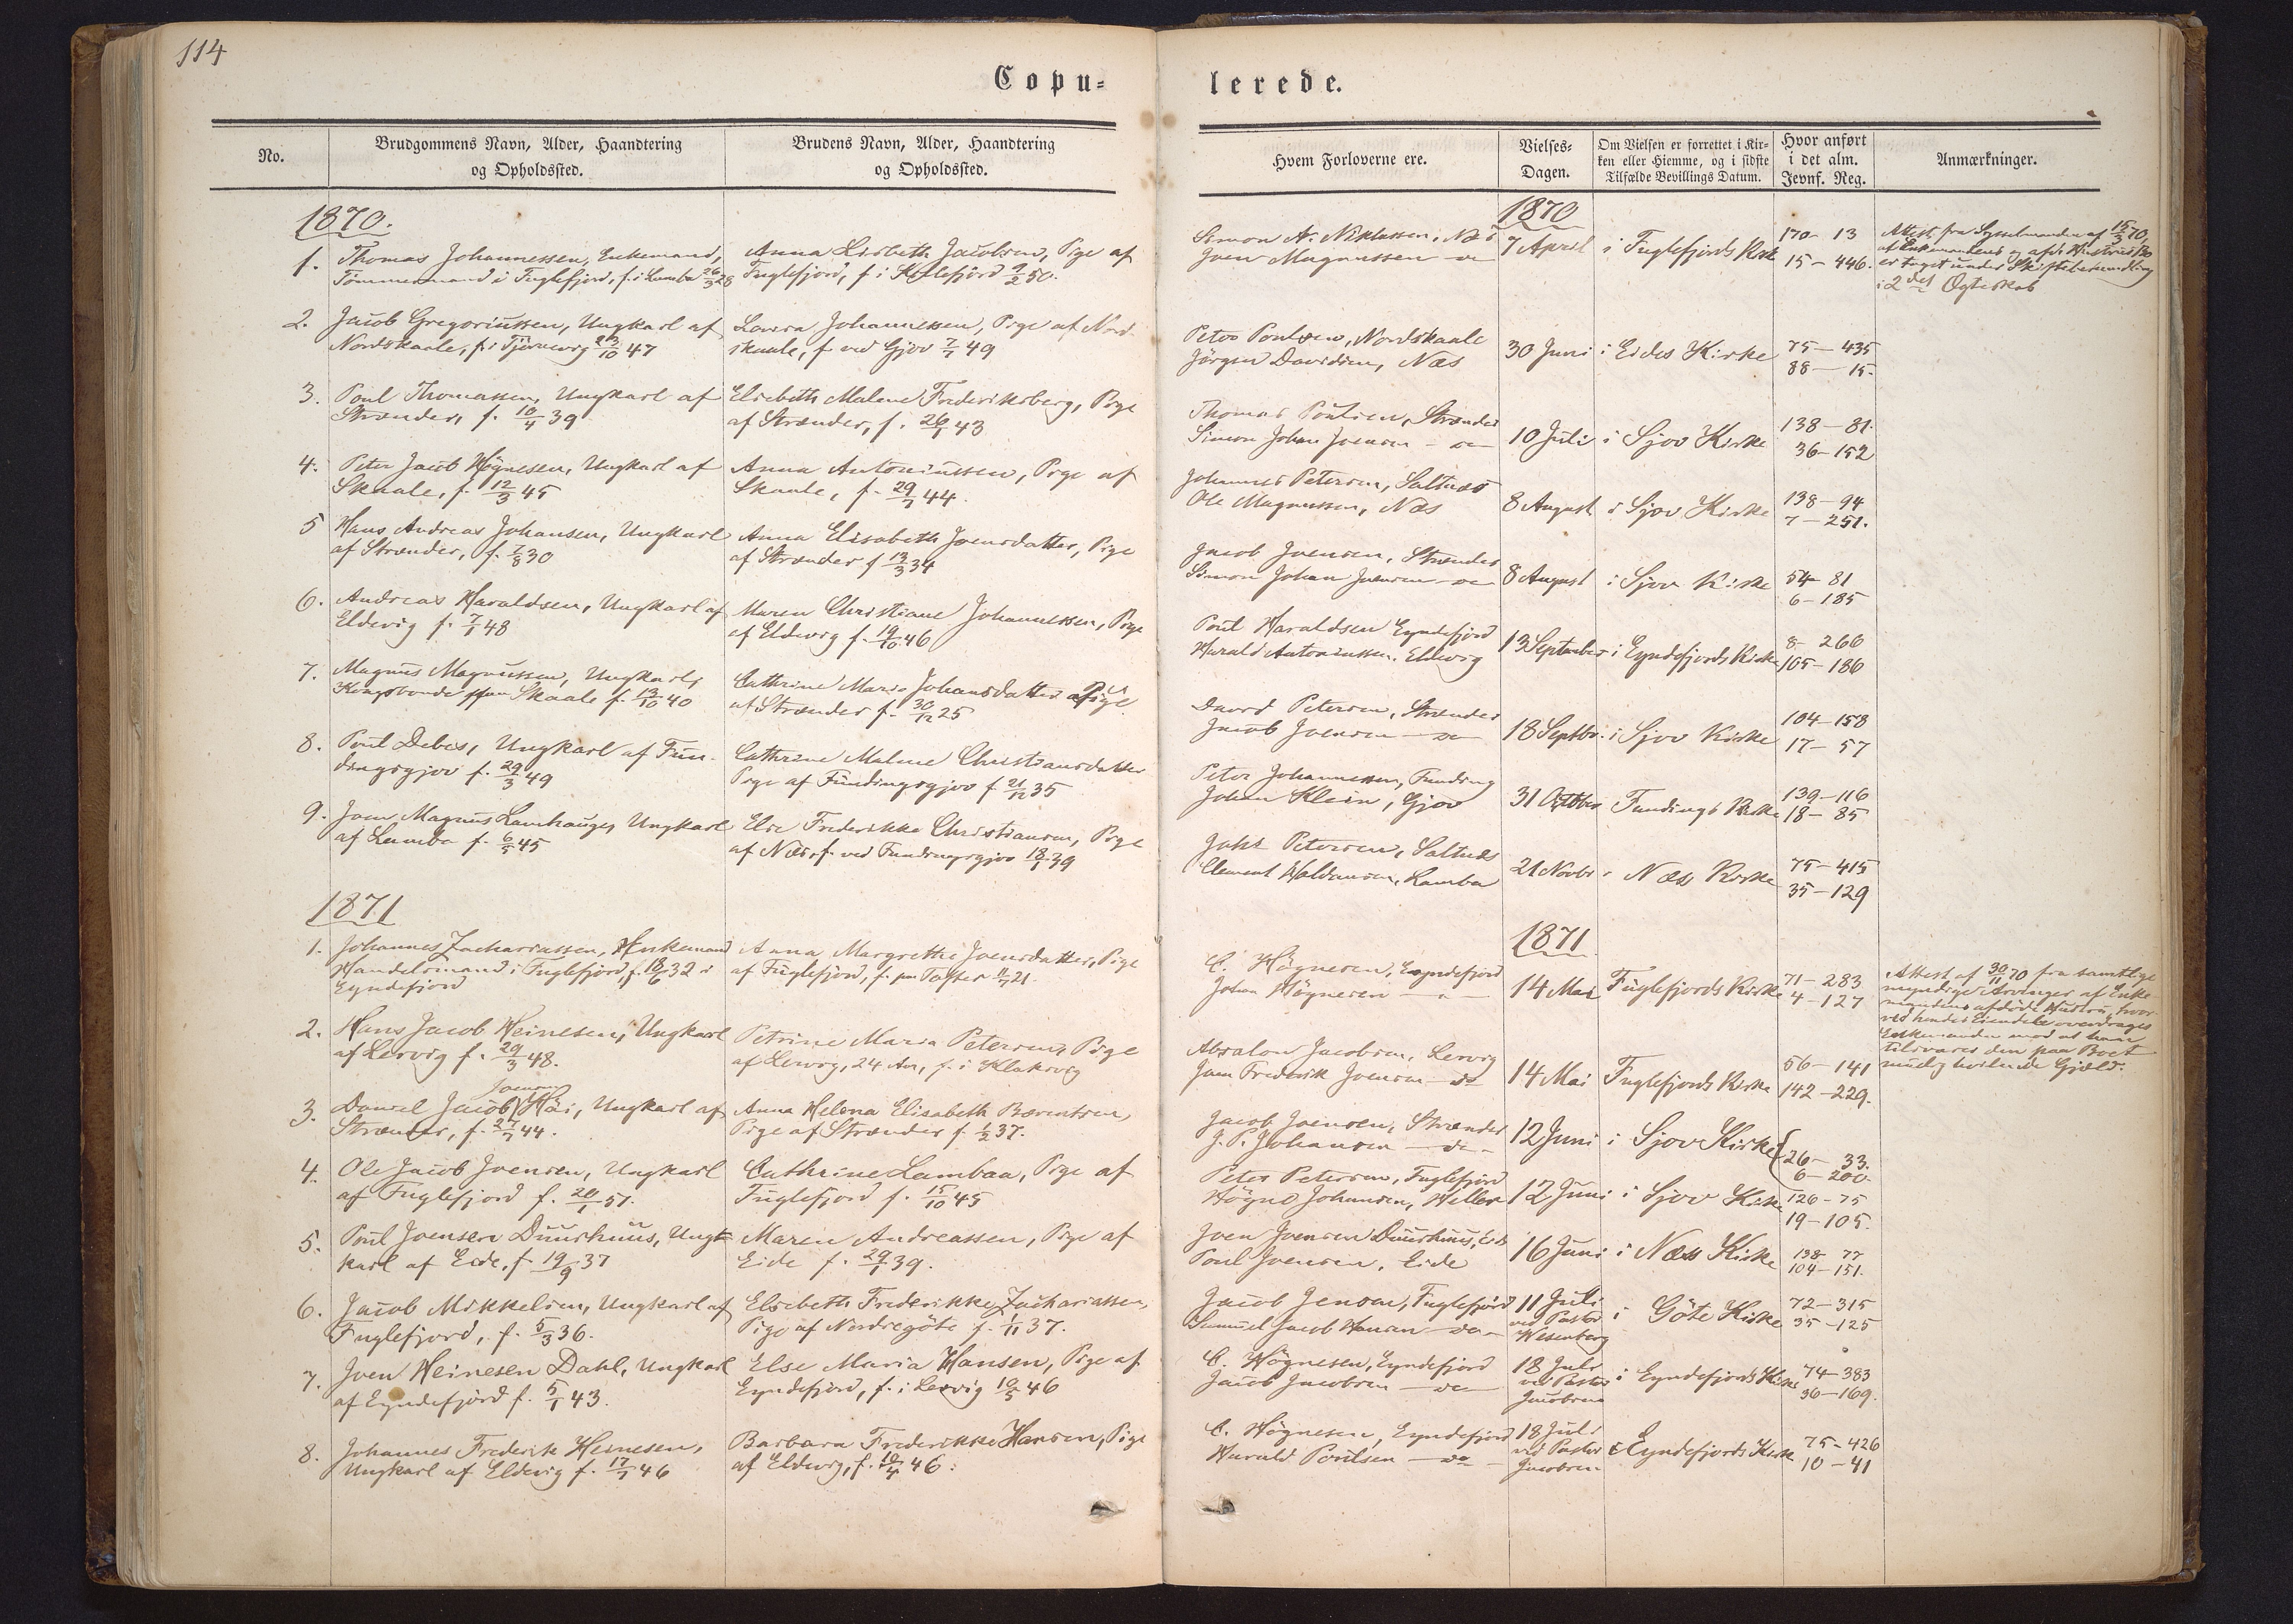 114
Copu=
lerede.
No.
Brudgommens Navn, Alder, Haandtering
og Opholdssted.
Brudens Navn, Alder, Haandtering
og Opholdssted.
Hvem Forloverne ere.
Vielses-
Dagen.
Om Vielsen er forrettet i Kir-
ken eller Hiemme, og i sidste
Tilfælde Bevillings Datum.
Hvor anført
i det alm.
Jevnf. Reg.
Anmærkninger.
1870.
1. Thomas Johannessen, Enkemand,
Tømmermand i Fuglefjord, f. i Lamba 26/3 28
Anna Lisbeth Jacobsen, Pige af
Fuglefjord, f. i 9/2 50.
2. Jacob Gregoriussen, Ungkarl af
Nordskaale, f. i Tjørnevig 47
Lovisa Johannessen, Pige af Nord-
skaale, f. ved Gjov 7/7 49
3. Poul Thomassen, Ungkarl af
Strænder, f. 10/4 39
Elsebeth Malene Frederiksberg, Pige
af Strænder, f. 26/1 43
4. Peter Jacob Høgnesen, Ungkarl af
Skaale, f. 12/3 45
Anna Antoniussen, Pige af
Skaale, f. 29/7 44.
5 Hans Andreas Johansen, Ungkarl
af Strænder, f. 7/8 30
Anna Elisabeth Joensdatter, Pige
af Strænder f 13/3 34
6. Andreas Haraldsen, Ungkarl af
Eldevig f. 7/1 48
Maren Christiane Johannessen, Pige
af Eldevig f. 19/10 46
7. Magnus Magnussen, Ungkarl,
Kongsbonde Skaale f. 13/10 40
Cathrine Marie Johansdatter Pige
af Strænder f. 30/12 25
8. Poul Debes, Ungkarl af Fun-
dingsgjov f. 29/3 49
Cathrine Malene Christiansdatter
Pige af Fundingsgjov f 21/12 35
9. Joen Magnus Lamhauge, Ungkarl
af Lamba f. 6/5 45
Else Frederikke Christiansen, Pige
af Næs, f. ved Fundingsgjov 18/1 39
1871
1. Johannes Zachariassen, Enkemand
Handelsmand i Fuglefjord, f. 18/6 32 i
Eyndefjord
Anna Margrethe Joensdatter, Pige
af Fuglefjord, f. paa Tofter 21.
2. Hans Jacob Heinesen, Ungkarl
af Lervig f. 29/3 48.
Petrine Maria Petersen, Pige
af Lervig, 24 Aar, f. i Klaksvig
Joensen
3. Daniel Jacob Høi, Ungkarl af
Strænder, f. 27/7 44.
Anna Helena Elisabeth Bærentsen,
Pige af Strænder f. 1/2 37.
4. Ole Jacob Joensen, Ungkarl
af Fuglefjord f. 20/1 51.
Cathrine Lambaa, Pige af
Fuglefjord f. 15/10 45
5. Poul Joensen Duurhuus, Ung-
karl af Eide, f. 19/9 37
Maren Andreassen, Pige af
Eide f. 29/1 39.
6. Jacob Mikkelsen, Ungkarl af
Fuglefjord, f. 5/3 36.
Elsebeth Frederikke Zachariassen,
Pige af Nordregøte f. 1/11 37.
7. Joen Heinesen Dahl, Ungkarl
af Eyndefjord f. 5/1 43.
Else Maria Hansen, Pige af
Eyndefjord, f. i Lervig 10/5 46
8. Johannes Frederik Heinesen,
Ungkarl af Eldevig f. 17/7 46
Barbara Frederikke Hansen, Pige
af Eldevig, f. 10/4 46.
1870
Simon N. Niklassen, Næs
Joen Magnussen do
7 April
i Fuglefjords Kirke
170 - 13
15 - 446.
Attest fra Sysselmanden af 15/3 70,
at Enkemandens og afd. Hustrus Bo
er taget under Skiftebehandling
i 2det Ægteskab
Peter Poulsen, Nordskaale
Jørgen Davidsen, Næs
30 Juni
i Eides Kirke
75 - 435
88 - 15.
Thomas Poulsen, Strænder
Simon Johan Joensen - do
10 Juli
i Sjov Kirke
138 - 81.
36 - 152
Johannes Petersen, Saltnæs
Ole Magnussen, Næs
8 August
i Sjov Kirke
138 - 94
7 - 251.
Jacob Joensen, Strænder
Simon Johan Joensen do
8 August
i Sjov Kirke
54 - 81
6 - 185
Poul Haraldsen Eyndefjord
Harald Antoniussen, Eldevig
13 September
i Eyndefjords Kirke
8 - 266
105 - 186
David Petersen, Strænder
Jacob Joensen do
18 Septbr.
i Sjov Kirke
104 - 158
17 - 57
Peter Johannessen, Funding
Johan Klein, Gjov
31 Octbr
Fundings Kirke
139 - 116
18 - 85
Johs Petersen, Saltnæs
Clement Haldansen, Lamba
21 Novbr
i Næs Kirke
75 - 415
35 - 129
1871
C. Høgnesen, Eyndefjord
Johan Høgnesen
14 Mai
Fuglefjords Kirke
71 - 283
4 - 127
Attest af 30/11 70 fra samtlige
myndige Arvinger af Enke
mandens afdøde Hustru, hvor-
ved hendes Eiendele overdrages
Enkemanden mod at han
tilsvarer den paa Boet
muelig heilende Gjæld.
Absalon Jacobsen, Lervig
Joen Frederik Joensen do
14 Mai
Fuglefjords Kirke
56 - 141
142 - 229.
Jacob Joensen, Strænder
J. P. Johansen - do -
12 Juni
i Sjov Kirke
26 - 33.
6 - 200.
Peter Petersen, Fuglefjord
Høgne Johansen, Hellen
12 Juni
i Sjov Kirke
126 - 75
19 - 105.
Joen Joensen Duurhuus, Eide
Poul Joensen, Eide
16 Juni
i Næs Kirke
138 - 77
104 - 151.
Jacob Jensen, Fuglefjord
Samuel Jacob Hansen do
11 Juli
ved Pastor
Wesenberg
i Gøte Kirke
72 - 315
35 - 125
C. Høgnesen, Eyndefjord
Jacob Jacobsen do
18 Juli
ved Pastor
Jacobsen
i Eyndefjords Kirke
74 - 383
36 - 169.
C. Høgnesen, Eyndefjord
Harald Poulsen - do
18 Juli
ved Pastor
Jacobsen
i Eyndefjords Kirke
75 - 426
10 - 41